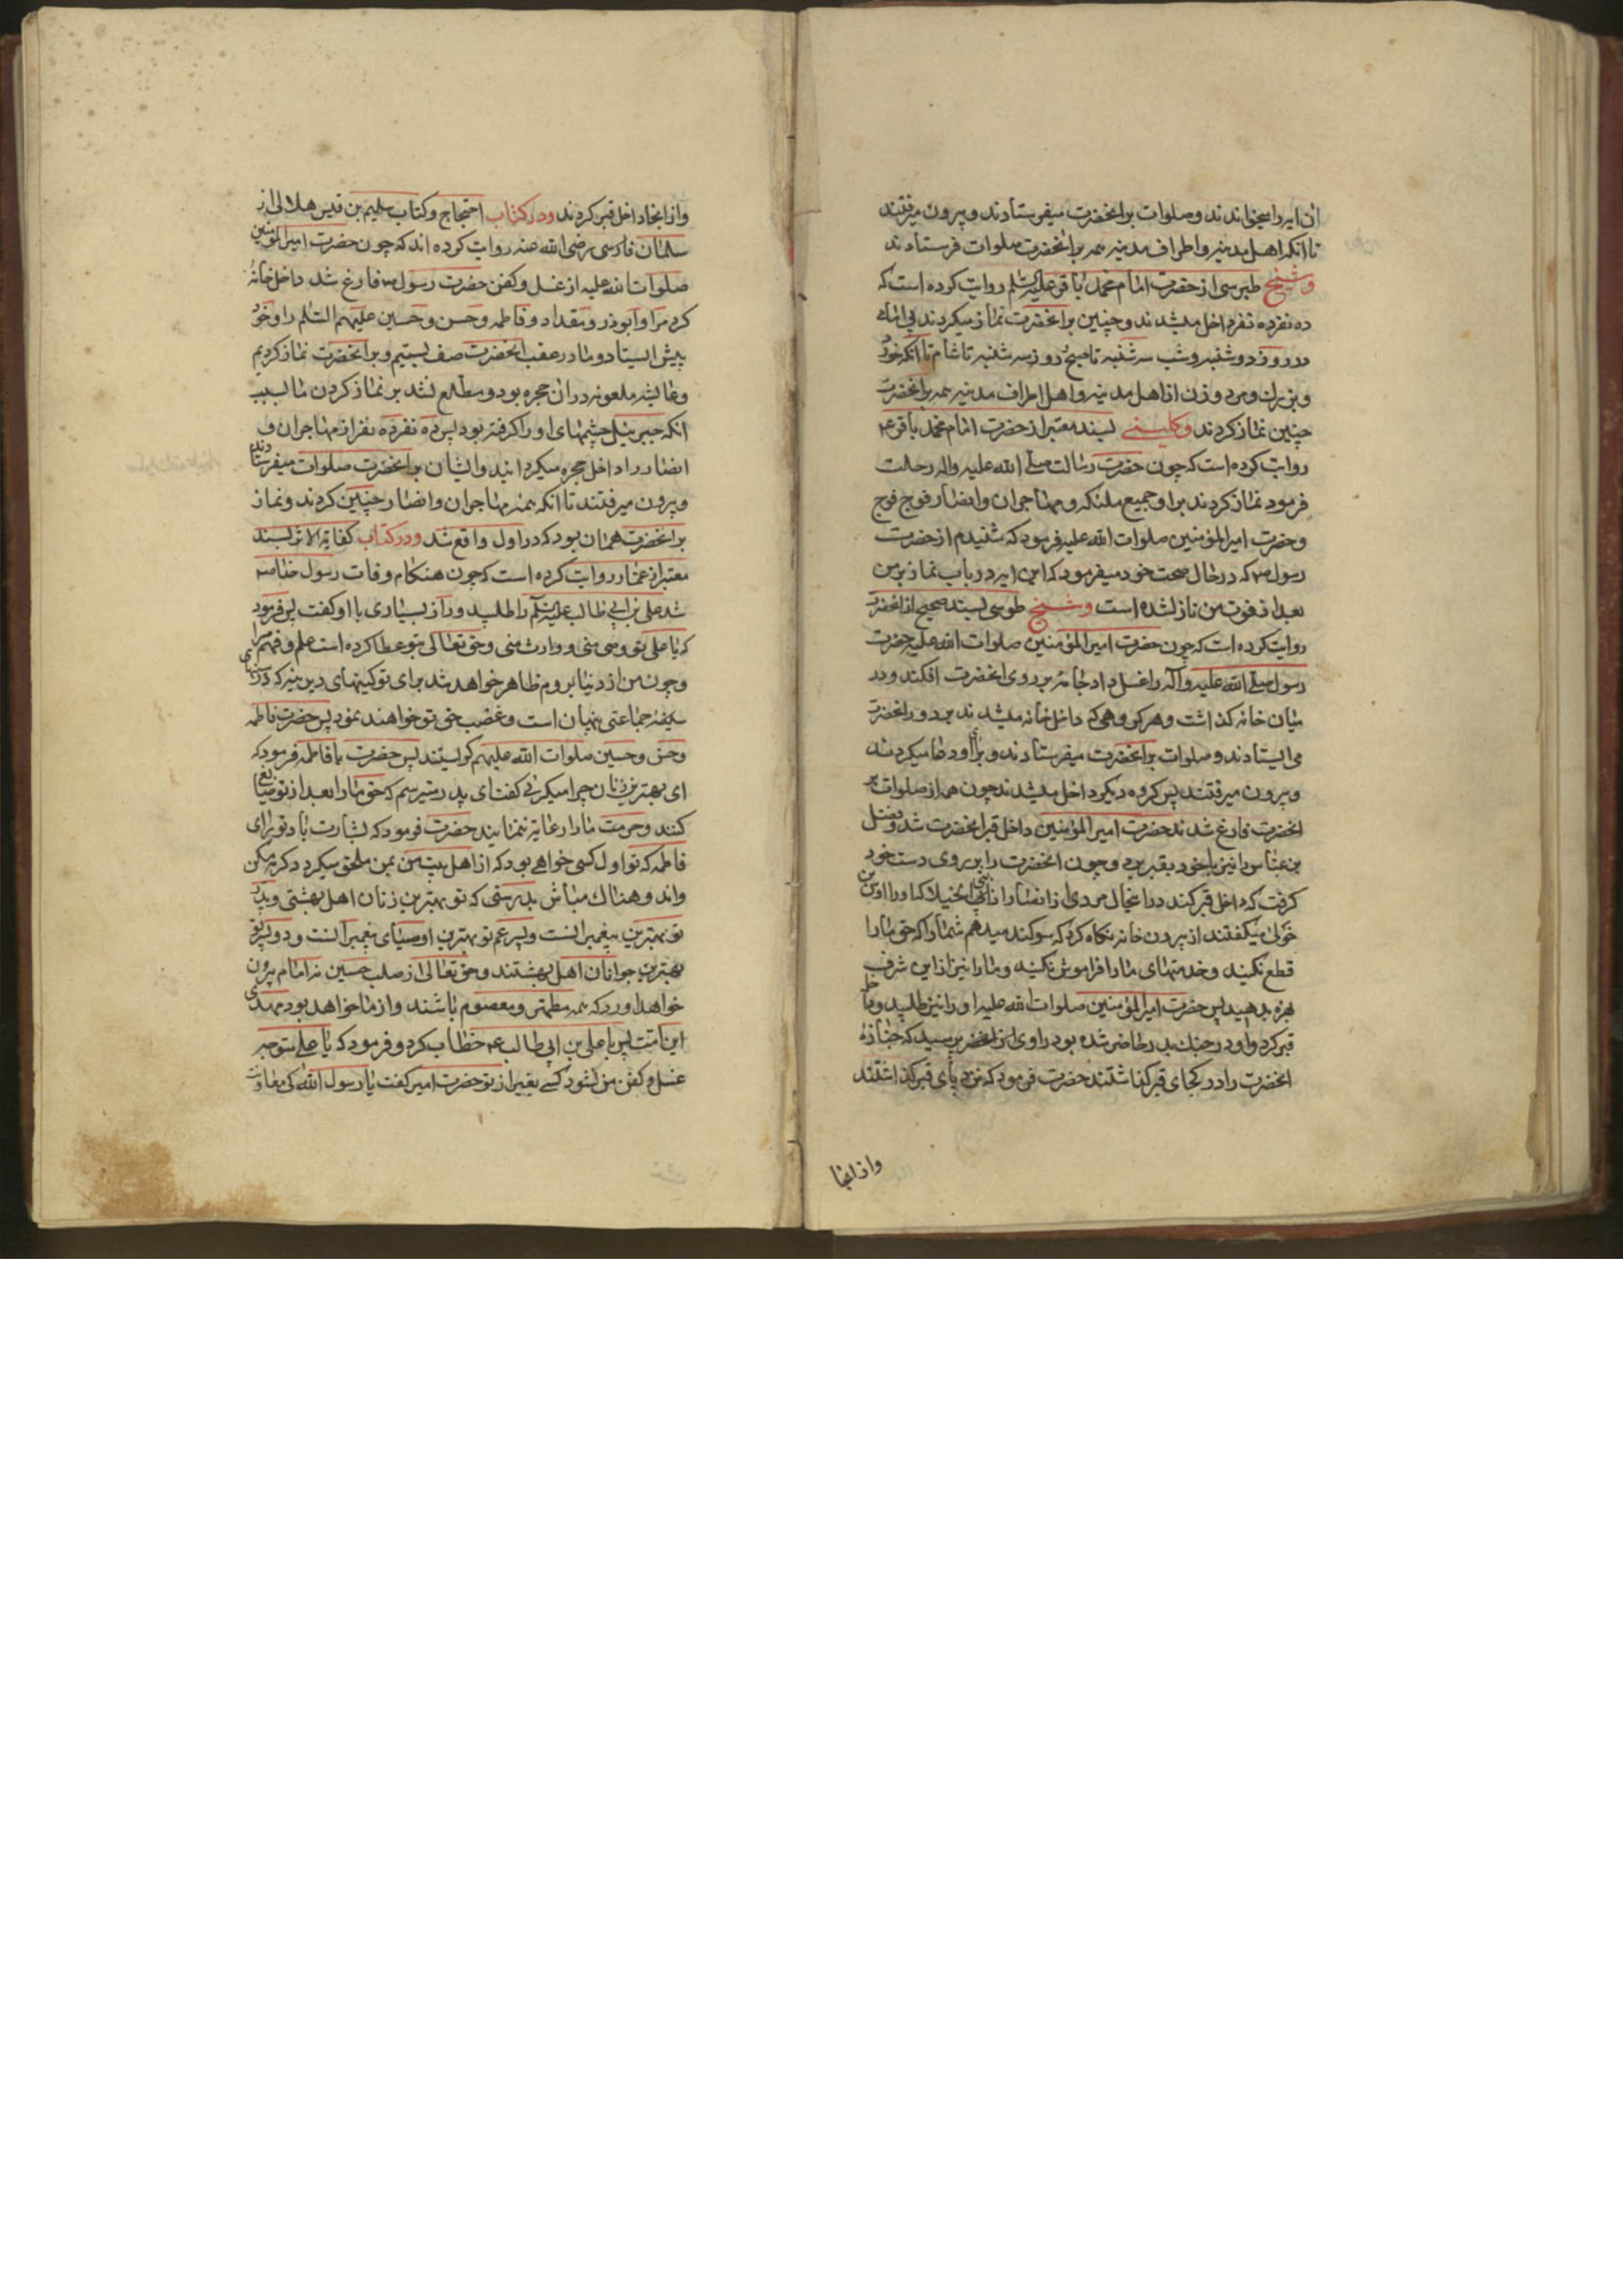 آن آیه را میخواندند و صلوات بر آنحضرت میفرستادند و بیرون میرفتند
تا آنکه اهل مدینه و اطراف مدینه همه بر آنحضرت صلوات فرستادند
و شیخ طبرسی از حضرت امام محمد باقر علیه السلم روایت کرده است که
ده نفر ده نفر داخل میشدند و چنین بر آنحضرت نماز میکردند بی امامی
در روز دوشنبه و شب سه شنبه تا صبح و روز سه شنبه تا شام تا آنکه خورد
و بزرك و مرد و زن از اهل مدینه و اهل اطراف مدینه همه بر آنحضرت
چنین نماز کردند و کلینی بسند معتبر از حضرت امام محمد باقر ع
روایت کرده است که چون حضرت رسالت صلی الله علیه واله رحلت
فرمود نماز کردند بر او جمیع ملئکه و مهاجران و انصار فوج فوج
و حضرت امیر المؤمنین صلوات الله علیه فرمود که شنیدم از حضرت
رسول ص که در حال صحت خود میفرمود که این آیه در باب نماز بر من
بعد از فوت من نازل شده است و شیخ طوسی بسند صحیح از آنحضرت
روایت کرده است که چون حضرت امیر المؤمنین صلوات الله علیه حضرت
رسول صلی الله علیه وآله را غسل داد جامه بر روی آنحضرت افکند و در
میان خانه گذاشت و هر گروهی که داخل خانه میشدند بر دور آنحضرت
می ایستادند و صلوات بر آنحضرت میفرستادند و برای او دعا میکردند
و بیرون میرفتند پس گروه دیگر داخل میشدند چون همه از صلوات بر
آنحضرت فارغ شدند حضرت امیر المؤمنین داخل قبر آنحضرت شد و فضل
بن عباس را نیز با خود بقبر برد و چون آنحضرت را بر روی دست خود
گرفت که داخل قبر کند در آنحال مردی از انصار از بنی الخیلا که او را اوس بن
خولی میگفتند از بیرون خانه نگاه کرد که سوگند میدهم شما را که حق ما را
قطع نکنید و خدمتهای ما را فراموش نکنید و ما را نیز از این شرف
بهره بدهید پس حضرت امیر المؤمنین صلوات الله علیه او را نیز طلبید و داخل
قبر کرد و او در جنك بدر حاضر شده بود راوی از آنحضرت پرسید که جنازه
آنحضرت را در کجای قبر گذاشتند حضرت فرمود که نزد پای قبر گذاشتند
و از آنجا
و از آنجا داخل قبر کردند و در کتاب احتجاج و کتاب سلیم بن قیس هلالی از
سلمان فارسی رضی الله عنه روایت کرده اند که چون حضرت امیر المؤمنین
صلوات الله علیه از غسل و کفن حضرت رسول ص فارغ شد داخل خانه
کرد مرا و ابوذر و مقداد و فاطمه و حسن و حسین علیهم السلم را و خود
پیش ایستاد و ما در عقب آنحضرت صف بستیم و بر آنحضرت نماز کردیم
و عایشه ملعونه در آن حجره بود و مطلع نشد بر نماز کردن ما بسبب
آنکه جبرئیل چشمهای او را گرفته بود پس ده نفر ده نفر از مهاجران و
انصار را داخل حجره میگردانید و ایشان بر آنحضرت صلوات میفرستادند
و بیرون میرفتند تا آنکه همه مهاجران و انصار چنین کردند و نماز
بر آنحضرت همان بود که در اول واقع شد و در کتاب کفایة الاثر بسند
معتبر از عمار روایت کرده است که چون هنکام وفات رسول خدا ص
شد علی بن ابی طالب علیه السلم را طلبید و راز بسیاری با او گفت پس فرمود
که یا علی تو وصی منی و وارث منی و حق تعالی بتو عطا کرده است علم و فهم مرا
و چون من از دنیا بروم ظاهر خواهد شد برای تو کینهای دیرینه که در سینهای
سینه جماعتی پنهان است و غضب حق تو خواهند نمود پس حضرت فاطمه
و حسن و حسین صلوات الله علیهم گریستند پس حضرت با فاطمه فرمود که
ای بهترین زنان چرا میگریی گفت ای پدر میترسم که حق ما را بعد از تو ضایع
کنند و حرمت ما را رعایة ننمایند حضرت فرمود که بشارت باد تو را ای
فاطمه که تو اول کسی خواهی بود که از اهل بیت من بمن ملحق میگردد گریه مکن
و اندوهناك مباش بدرستی که تو بهترین زنان اهل بهشتی و پدر
تو بهترین پیغمبرانست و پسر عم تو بهترین اوصیای پیغمبرانست و دو پسر تو
بهترین جوانان اهل بهشتند و حق تعالی از صلب حسین نه امام بیرون
خواهد آورد که همه مطهر و معصوم باشند و از ما خواهد بود مهدی
این امت پس با علی بن ابی طالب ع خطاب کرد و فرمود که یا علی متوجه
غسل و کفن من نشود کسی بغیر از تو حضرت امیر گفت یا رسول الله کی معاونت